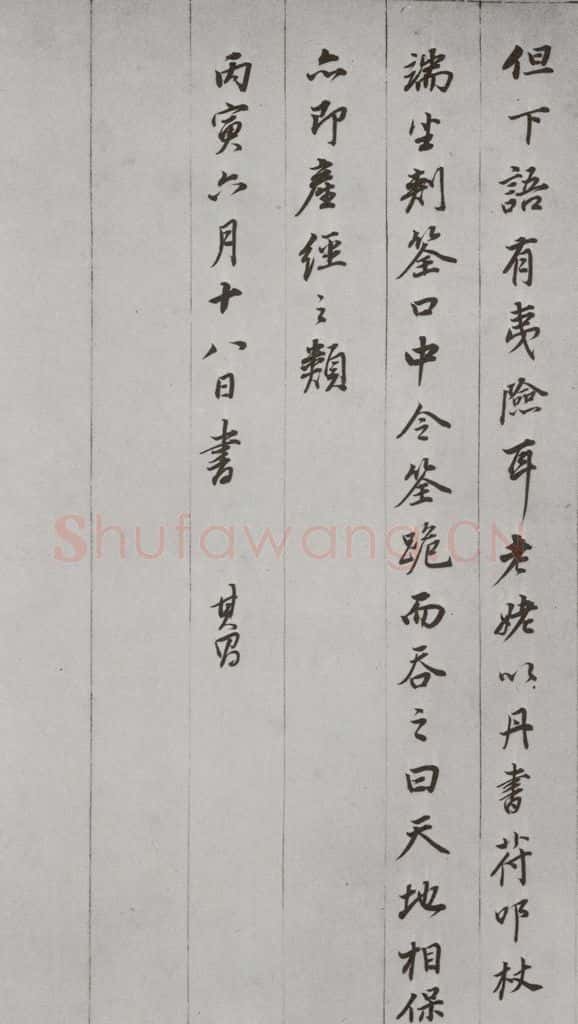 但下語有夷險耳老姥以丹書符叩杖
端坐刺筌口中令筌跪而吞之曰天地相保
亦即産經之類
丙寅六月十八日書 其昌
Shufawang.CN